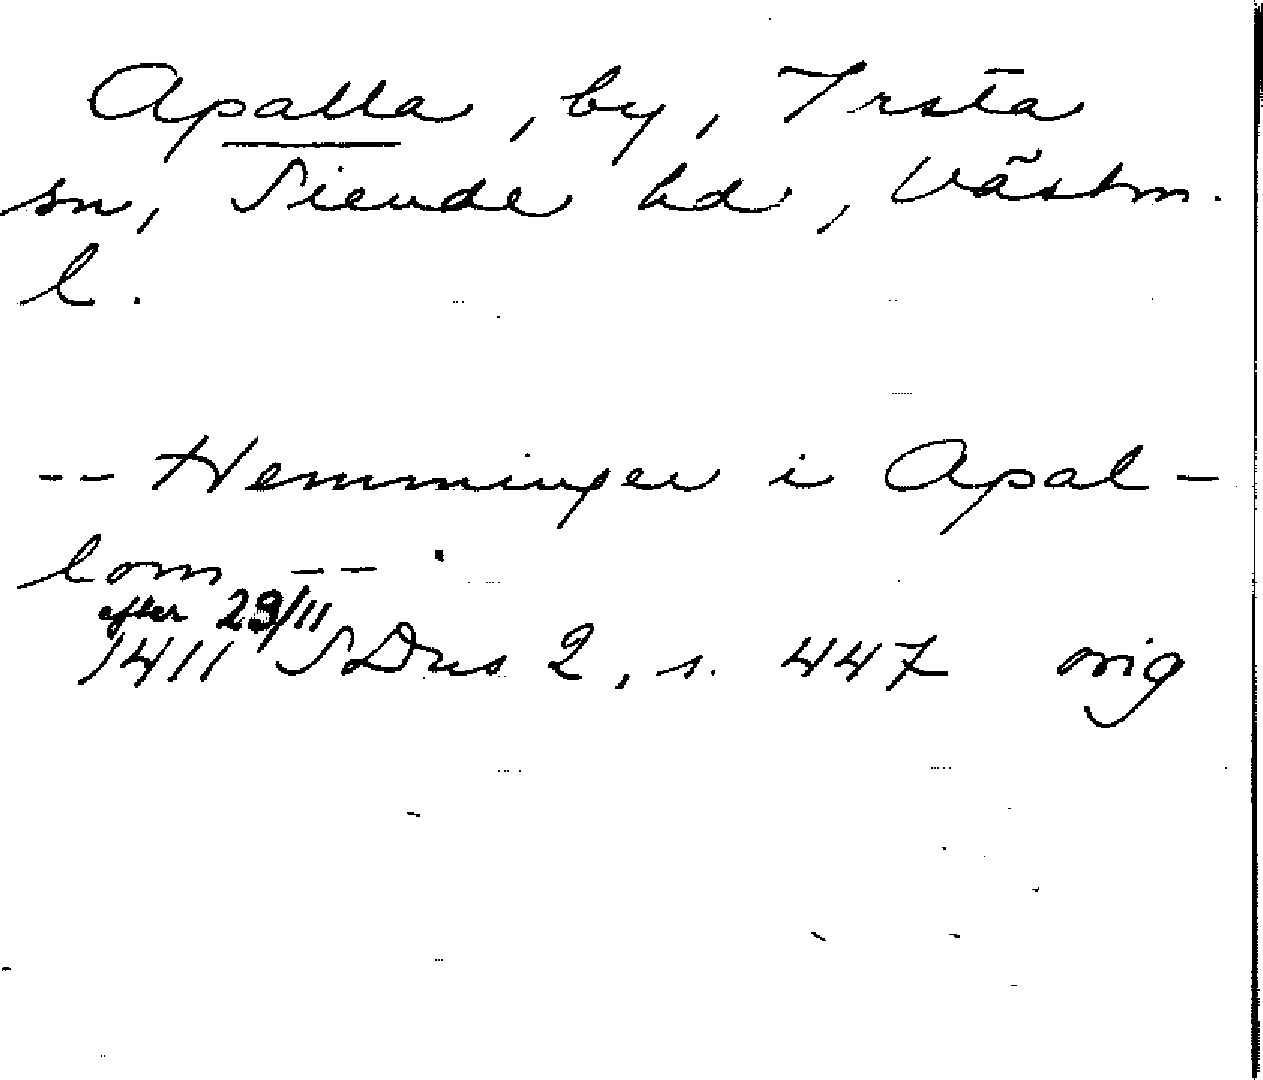 Apalla, by, Irsta
sn, Siende hd, Västm.
l.
-- Hemminger i Apal-
lom -- .
efter 23/11
1411 SDns 2, s. 447 orig